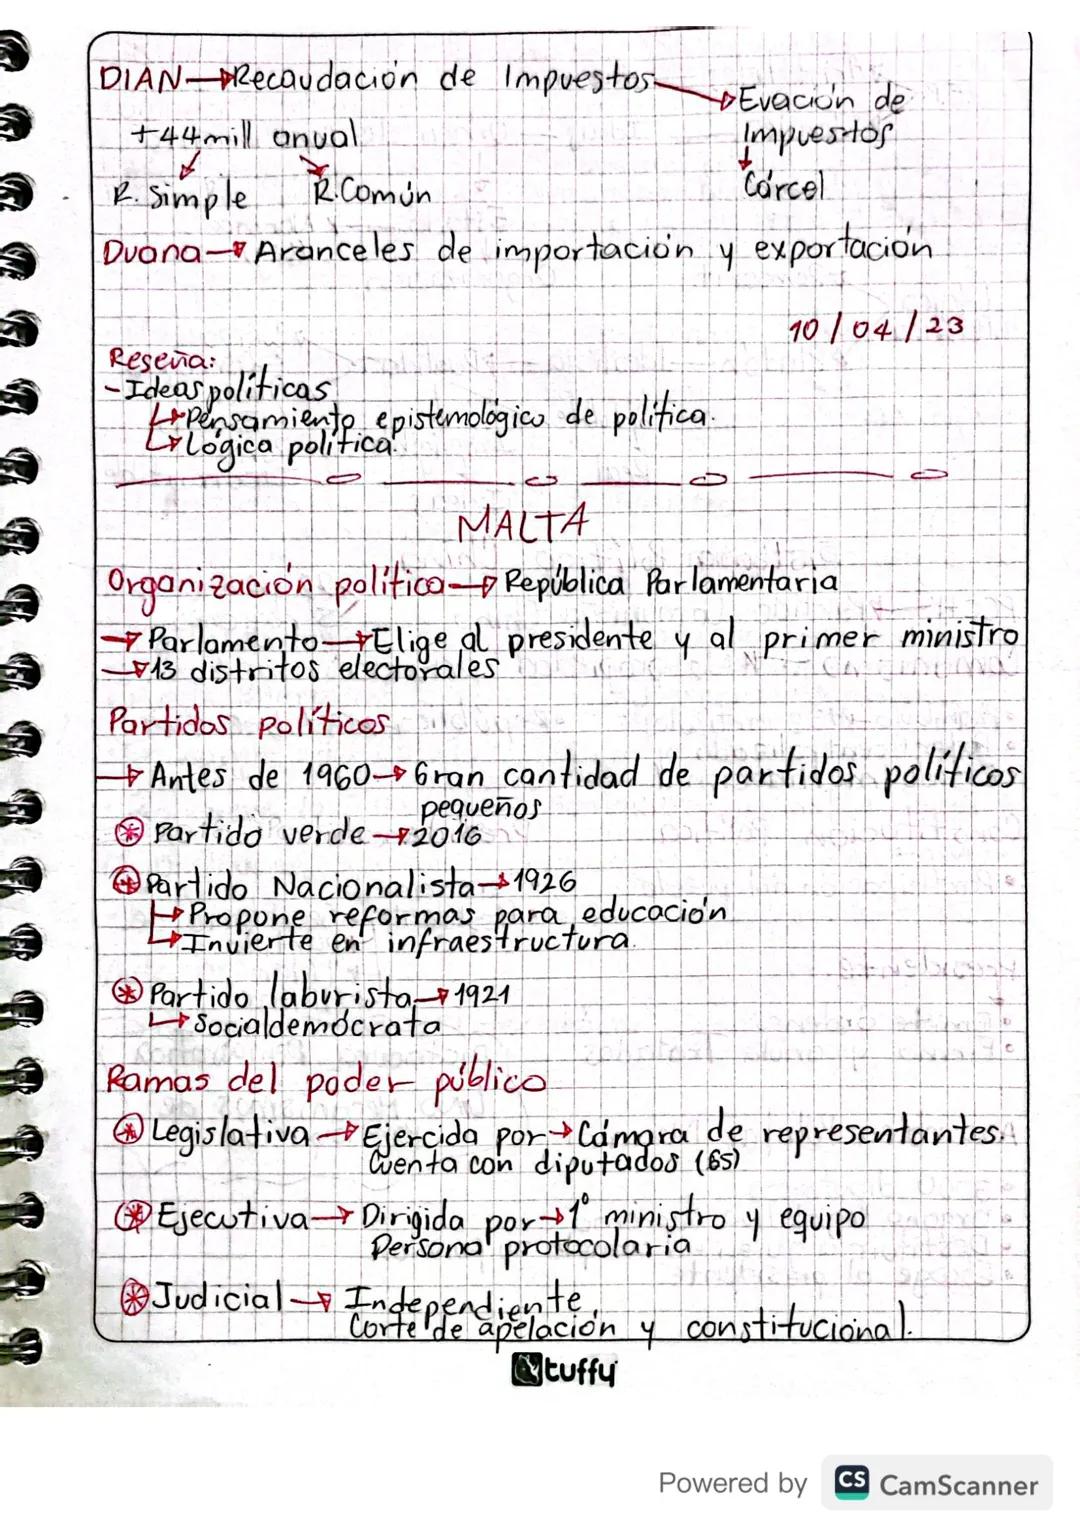 DIAN→Recaudación de Impuestos→Evación de
Impuestos
↓
Cárcel
+44mill anual
R. Simple R.Común
Duana→Aranceles de importación y exportación
10/04/23
Reseña:
-Ideas políticas
↳Pensamiento epistemológico de política.
↳Lógica política.
MALTA
Organización política→República Parlamentaria
→Parlamento→Elige al presidente y al primer ministro
→13 distritos electorales
Partidos políticos
→Antes de 1960→Gran cantidad de partidos políticos
pequeños
Partido verde→2016
Partido Nacionalista→1926
↳Propone reformas para educación
↳Invierte en infraestructura.
Partido laburista→1921
↳Socialdemócrata
Ramas del poder público
Legislativa→Ejercida por→Cámara de representantes.
Cuenta con diputados (65)
Ejecutiva→Dirigida por→1° ministro y equipo
Persona protocolaria
Judicial→Independiente,
Corte de apelación y constitucional.
tuffy
Powered by CS CamScanner